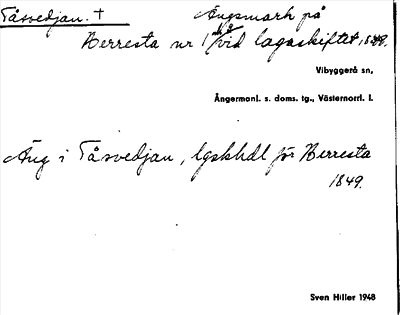 Tåsvedjan. † Ängsmark på
Berresta nr 1 vid lagaskiftet, 1849.
Vibyggerå sn,
Ångermanl. s. doms. tg., Västernorrl. l.
Äng i Tåsvedjan, lgskhdl för Berresta
1849.
Sven Hiller 1948